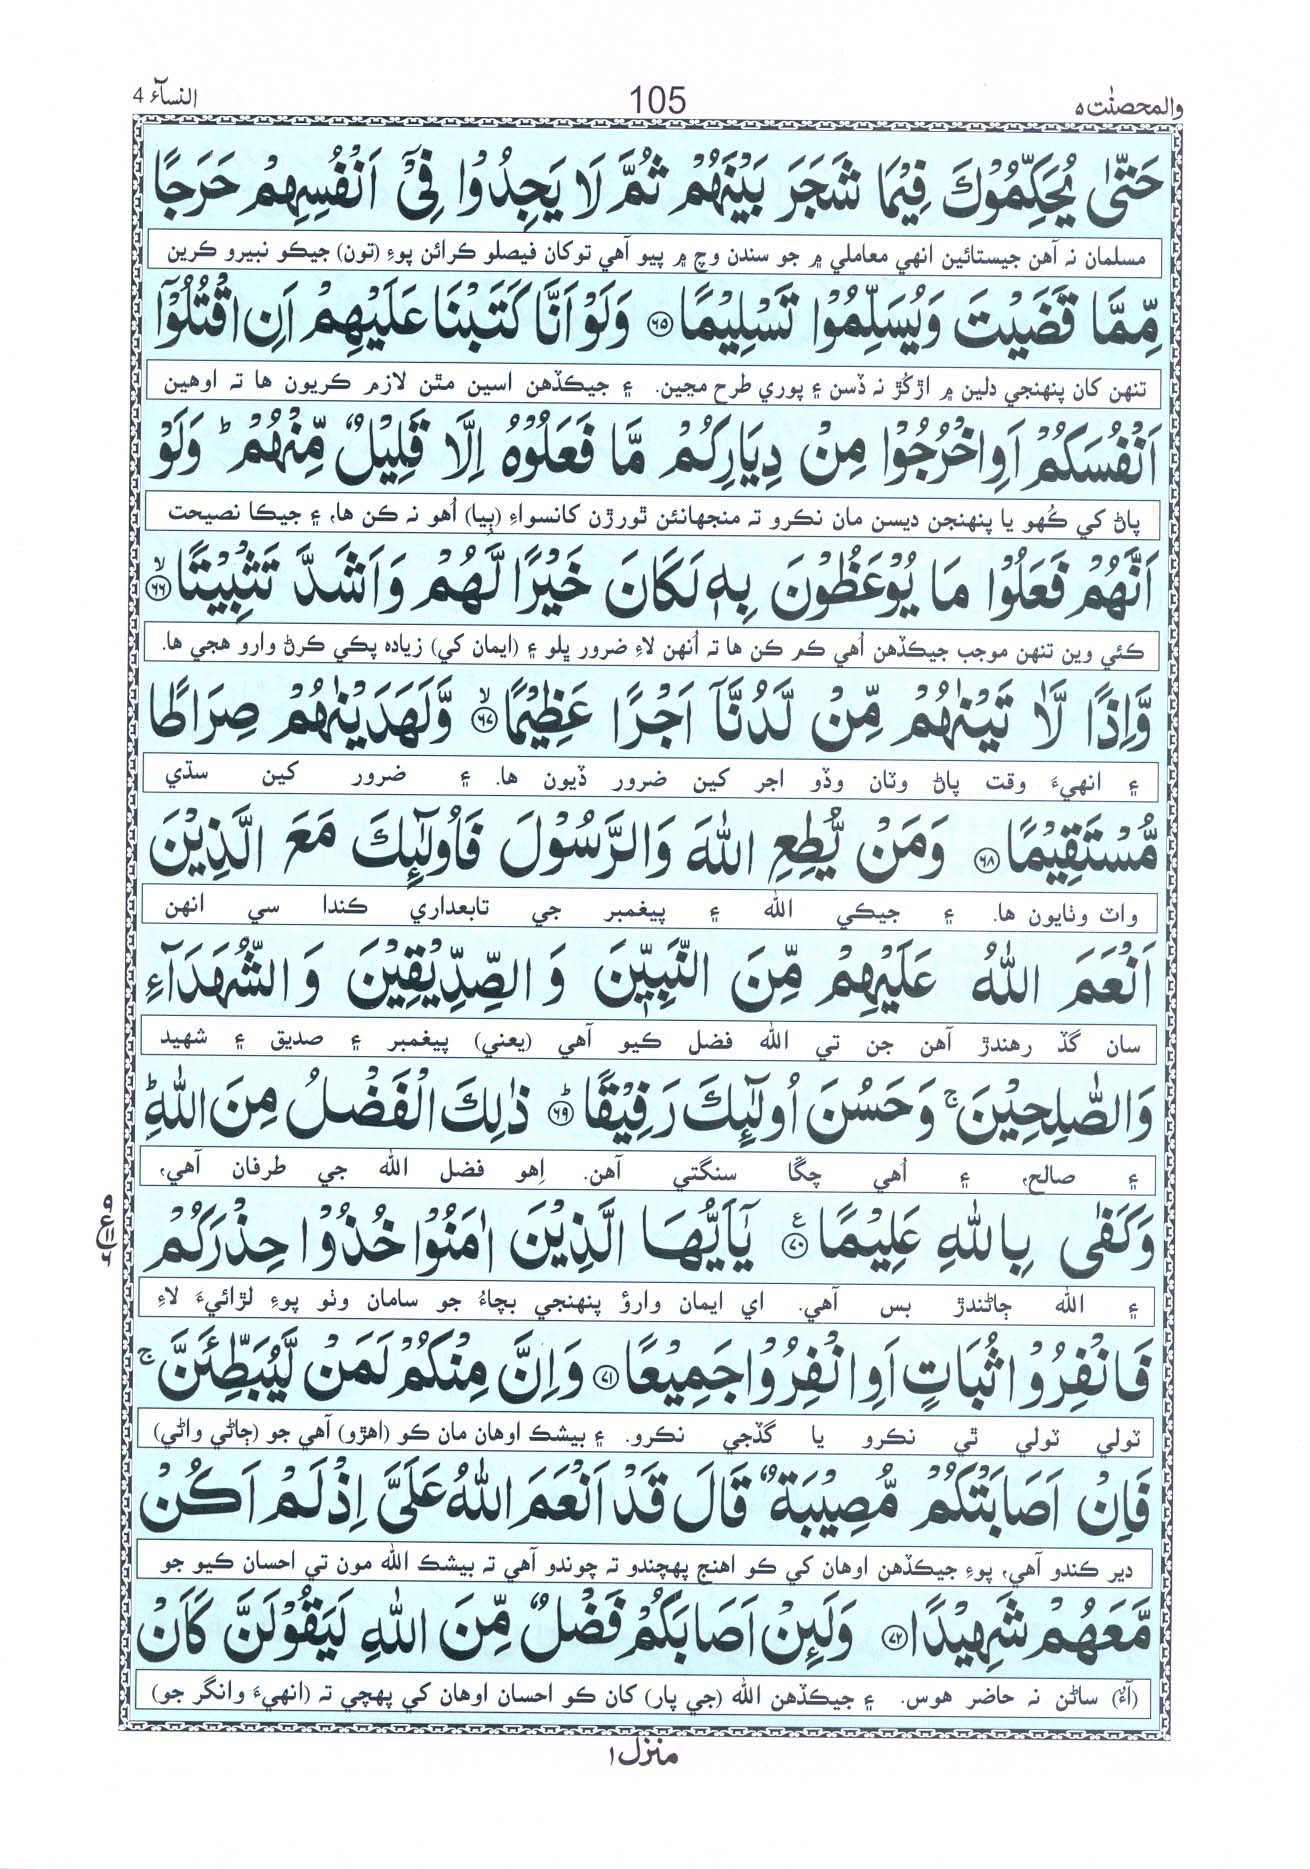 والمحصنٰت ٥ 105 النسآء 4
حَتّٰى يُحَكِّمُوْكَ فِيْمَا شَجَرَ بَيْنَهُمْ ثُمَّ لَا يَجِدُوْا فِيْٓ اَنْفُسِهِمْ حَرَجًا
مسلمان نہ آهن جيستائين انهي معاملي ۾ جو سندن وچ ۾ پيو آهي توکان فيصلو کرائن پوءِ (تون) جيڪو نبيرو ڪرين
مِّمَّا قَضَيْتَ وَيُسَلِّمُوْا تَسْلِيْمًا ﴿۶۵﴾ وَلَوْ اَنَّا كَتَبْنَا عَلَيْهِمْ اَنِ اقْتُلُوْٓا
تنهن کان پنهنجي دلين ۾ اڙڪُڙ نہ ڏسن ۽ پوري طرح مڃين. ۽ جيڪڏهن اسين مٿن لازم ڪريون ها تہ اوهين
اَنْفُسَكُمْ اَوِ اخْرُجُوْا مِنْ دِيَارِكُمْ مَّا فَعَلُوْهُ اِلَّا قَلِيْلٌ مِّنْهُمْ ؕ وَلَوْ
پاڻ کي ڪُهو يا پنهنجن ديسن مان نڪرو تہ منجهائن ٿورڙن کانسواءِ (ٻيا) اُهو نہ ڪن ها، ۽ جيڪا نصيحت
اَنَّهُمْ فَعَلُوْا مَا يُوْعَظُوْنَ بِهٖ لَكَانَ خَيْرًا لَّهُمْ وَاَشَدَّ تَثْبِيْتًا ﴿۶۶﴾ۙ
ڪئي وين تنهن موجب جيڪڏهن اُهي ڪم ڪن ها تہ اُنهن لاءِ ضرور ڀلو ۽ (ايمان کي) زياده پڪي ڪرڻ وارو هجي ها.
وَّاِذًا لَّاٰ تَيْنٰهُمْ مِّنْ لَّدُنَّآ اَجْرًا عَظِيْمًا ﴿۶۷﴾ۙ وَّلَهَدَيْنٰهُمْ صِرَاطًا
۽ انهيءَ وقت پاڻ وٽان وڏو اجر کين ضرور ڏيون ها. ۽ ضرور کين سڌي
مُّسْتَقِيْمًا ﴿۶۸﴾ وَمَنْ يُّطِعِ اللّٰهَ وَالرَّسُوْلَ فَاُولٰٓئِكَ مَعَ الَّذِيْنَ
واٽ وٺايون ها. ۽ جيڪي الله ۽ پيغمبر جي تابعداري ڪندا سي انهن
اَنْعَمَ اللّٰهُ عَلَيْهِمْ مِّنَ النَّبِيّٖنَ وَ الصِّدِّيْقِيْنَ وَ الشُّهَدَآءِ
سان گڏ رهندڙ آهن جن تي الله فضل ڪيو آهي (يعني) پيغمبر ۽ صديق ۽ شهيد
وَالصّٰلِحِيْنَ ۚ وَحَسُنَ اُولٰٓئِكَ رَفِيْقًا ﴿۶۹﴾ؕ ذٰلِكَ الْفَضْلُ مِنَ اللّٰهِ ؕ
۽ صالح، ۽ اُهي چڱا سنگتي آهن. اِهو فضل الله جي طرفان آهي،
وَكَفٰى بِاللّٰهِ عَلِيْمًا ﴿۷۰﴾ع يٰٓاَيُّهَا الَّذِيْنَ اٰمَنُوْا خُذُوْا حِذْرَكُمْ
۽ الله ڄاڻندڙ بس آهي. اي ايمان وارؤ پنهنجي بچاءُ جو سامان وٺو پوءِ لڙائيءَ لاءِ
فَانْفِرُوْا ثُبَاتٍ اَوِ انْفِرُوْا جَمِيْعًا ﴿۷۱﴾ وَاِنَّ مِنْكُمْ لَمَنْ لَّيُبَطِّئَنَّ ۚ
ٽولي ٽولي ٿي نڪرو يا گڏجي نڪرو. ۽ بيشڪ اوهان مان ڪو (اهڙو) آهي جو (ڄاڻي واڻي)
فَاِنْ اَصَابَتْكُمْ مُّصِيْبَةٌ قَالَ قَدْ اَنْعَمَ اللّٰهُ عَلَيَّ اِذْ لَمْ اَكُنْ
دير ڪندو آهي، پوءِ جيڪڏهن اوهان کي ڪو اهنج پهچندو تہ چوندو آهي تہ بيشڪ الله مون تي احسان ڪيو جو
مَّعَهُمْ شَهِيْدًا ﴿۷۲﴾ وَلَئِنْ اَصَابَكُمْ فَضْلٌ مِّنَ اللّٰهِ لَيَقُوْلَنَّ كَاَنْ
(آءٌ) ساڻن نہ حاضر هوس. ۽ جيڪڏهن الله (جي پار) کان ڪو احسان اوهان کي پهچي تہ (انهيءَ وانگر جو)
منزل ١